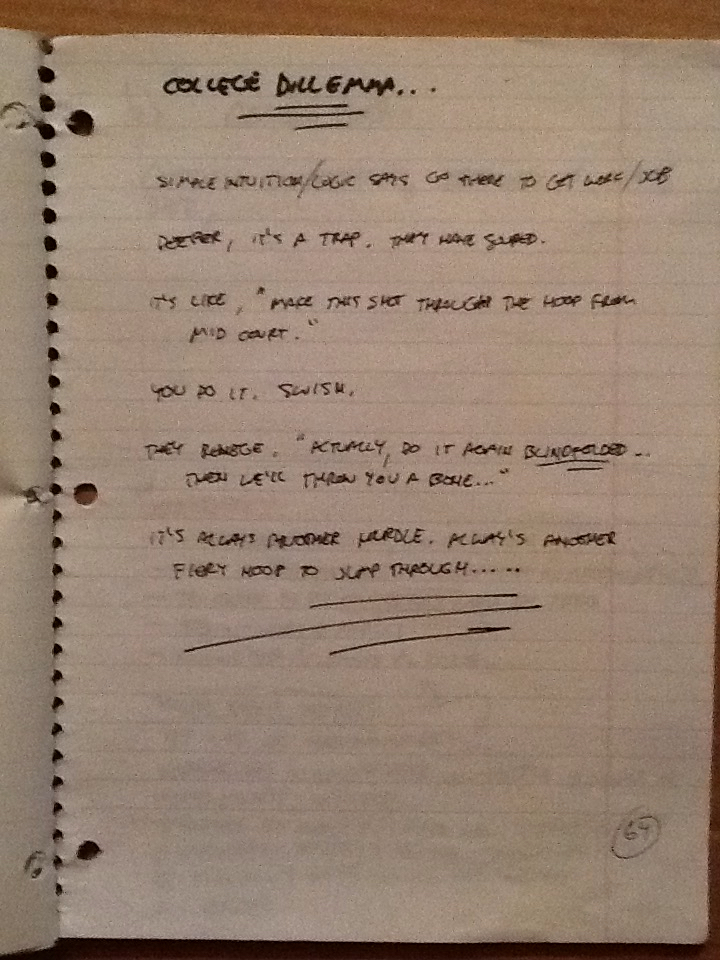 COLLEGE DILLEMMA...
SIMPLE INTUITION/LOGIC SAYS GO THERE TO GET WORK/JOB
DEEPER, IT'S A TRAP. THEY HAVE
IT'S LIKE, "MAKE THIS SHOT THROUGH THE HOOP FROM
MID COURT."
YOU DO IT. SWISH.
THEY RENEGE. "ACTUALLY, DO IT AGAIN BLINDFOLDED...
THEN WE'LL THROW YOU A BONE..."
IT'S ALWAYS ANOTHER HURDLE. ALWAY'S ANOTHER
FIERY HOOP TO JUMP THROUGH.....
64